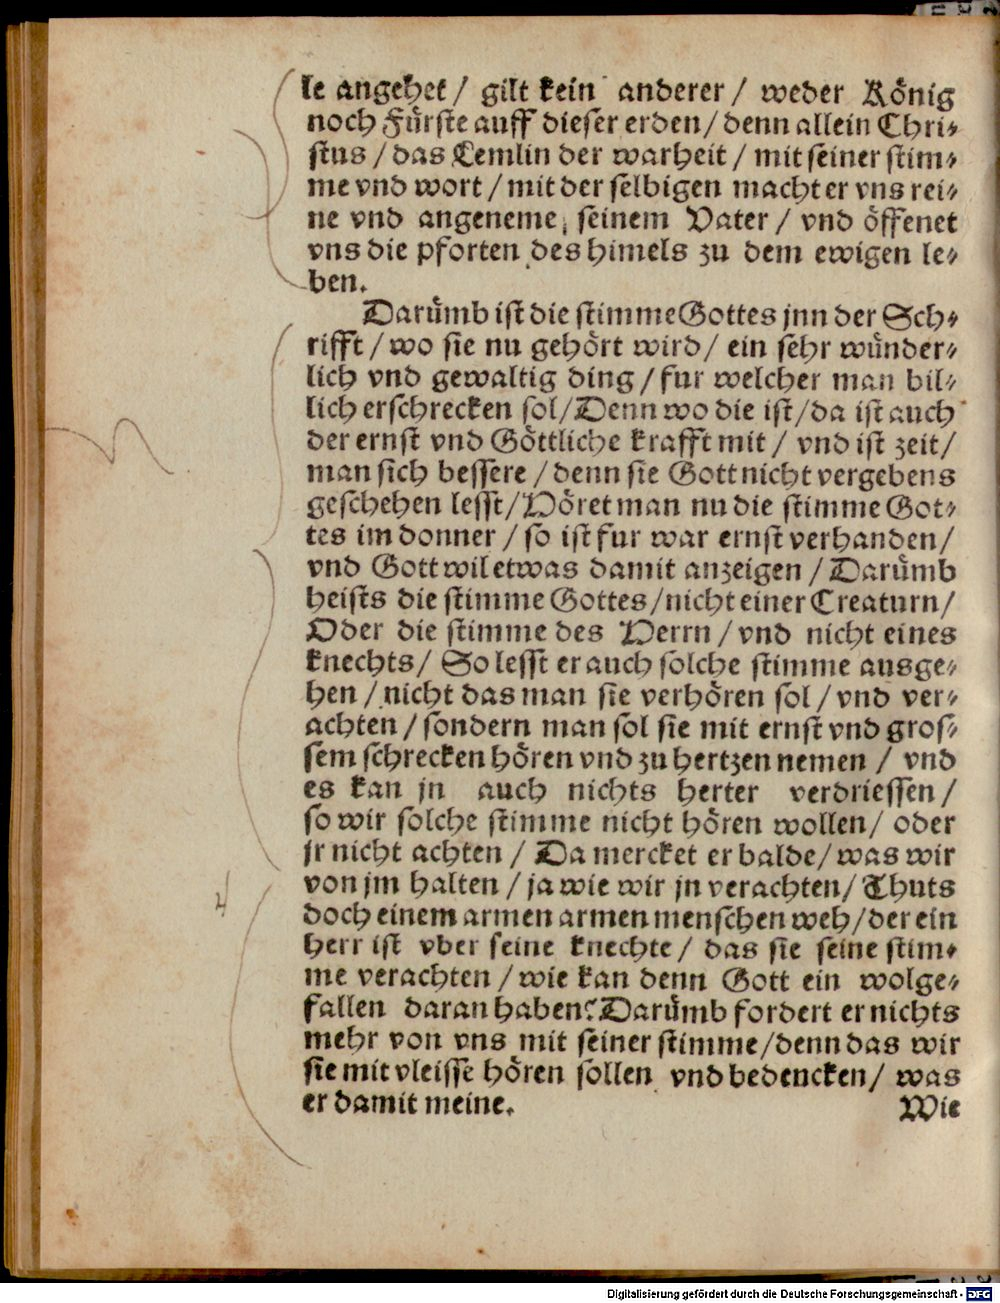 le angehet / gilt kein anderer / weder König
noch Fürste auff dieser erden / denn allein Chri⸗
stus / das Lemlin der warheit / mit seiner stim⸗
me vnd wort / mit der selbigen macht er vns rei⸗
ne vnd angeneme, seinem Vater / vnd öffenet
vns die pforten des himels zu dem ewigen le⸗
ben.
Darümb ist die stimme Gottes jnn der Sch⸗
rifft / wo sie nu gehört wird / ein sehr wünder⸗
lich vnd gewaltig ding / fur welcher man bil⸗
lich erschrecken sol / Denn wo die ist / da ist auch
der ernst vnd Göttliche krafft mit / vnd ist zeit /
man sich bessere / denn sie Gott nicht vergebens
geschehen lesst / Höret man nu die stimme Got⸗
tes im donner / so ist fur war ernst verhanden /
vnd Gott wil etwas damit anzeigen / Darümb
heists die stimme Gottes / nicht einer Creaturn /
Oder die stimme des Herrn / vnd nicht eines
knechts / So lesst er auch solche stimme ausge⸗
hen / nicht das man sie verhören sol / vnd ver⸗
achten / sondern man sol sie mit ernst vnd gros⸗
sem schrecken hören vnd zu hertzen nemen / vnd
es kan jn auch nichts herter verdriessen /
so wir solche stimme nicht hören wollen / oder
jr nicht achten / Da mercket er balde / was wir
von jm halten / ja wie wir jn verachten / Thuts
doch einem armen armen menschen weh / der ein
herr ist vber seine knechte / das sie seine stim⸗
me verachten / wie kan denn Gott ein wolge⸗
fallen daran haben? Darümb fordert er nichts
mehr von vns mit seiner stimme / denn das wir
sie mit vleisse hören sollen vnd bedencken / was
er damit meine.
Wie
Digitalisierung gefördert durch die Deutsche Forschungsgemeinschaft - DFG